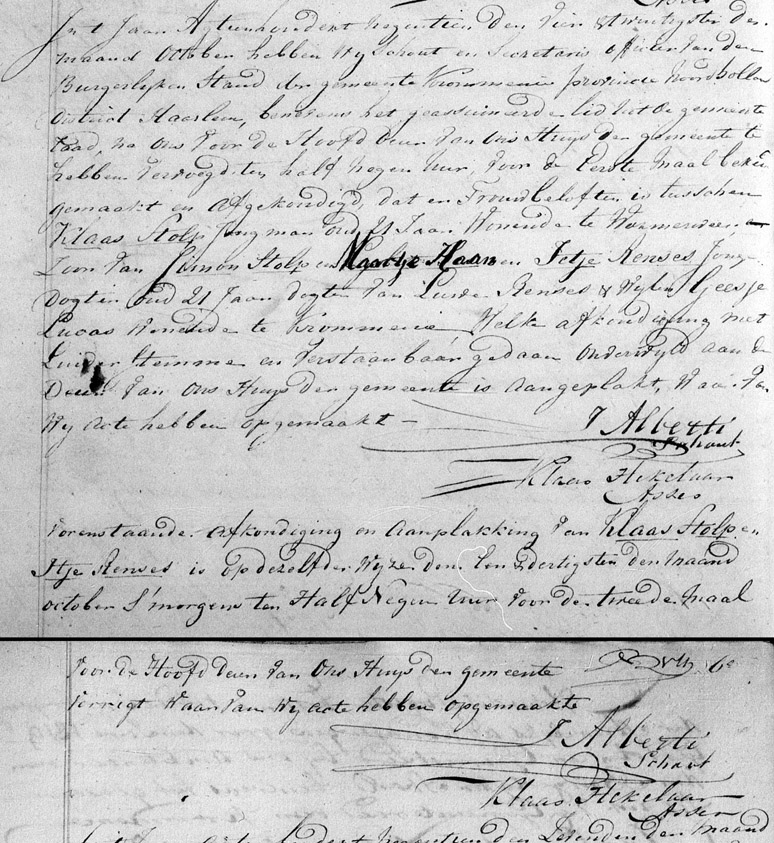 In t Jaar Agtienhondert Negentien den Vier & twintigsten der
maand October hebben Wy Schout en Secretaris officier van den
Burgerlyken Stand der gemeente Krommenie provincie Noordholland
district Haarlem, benevens het geassumeerde lid uit de gemeente
raad, na ons voor de Hoofd deur van Ons Huys der gemeente te
hebben vervoegd ten half negen Uur, voor de Eerste Maal beken
gemaakt en afgekondigd, dat en Trouwbeloften is tusschen
Klaas Stolp Jongman oud 21 Jaar Wonende te Wormerveer
Zoon van Simon Stolp en Maartje Haan en Jetje Renses Jonge
Dogter oud 21 Jaar dogter van Luwe Renses & Wylen Geesje
Lucas Wonende te Krommenie Welke afkondiging met
Luider Stemme en verstaanbaar gedaan Onderwyld aan de
Deur van Ons Huys der gemeente is Aangeplakt, Waar van
Wy acte hebben opgemaakt
J Alberti
Schout
Klaas Hekelaar
Asses
Vorenstaande afkondiging en Aanplakking van Klaas Stolp en
Itje Renses is op dezelfde Wyze den Een & dertigsten den maand
october S'morgens ten Half Negen Uur voor de tweede Maal
voor de Hoofd deur van Ons Huys der gemeente
verrigt Waar van Wy acte hebben opgemaakt
J Alberti
Schout
Klaas Hekelaar
Asses
den Maand